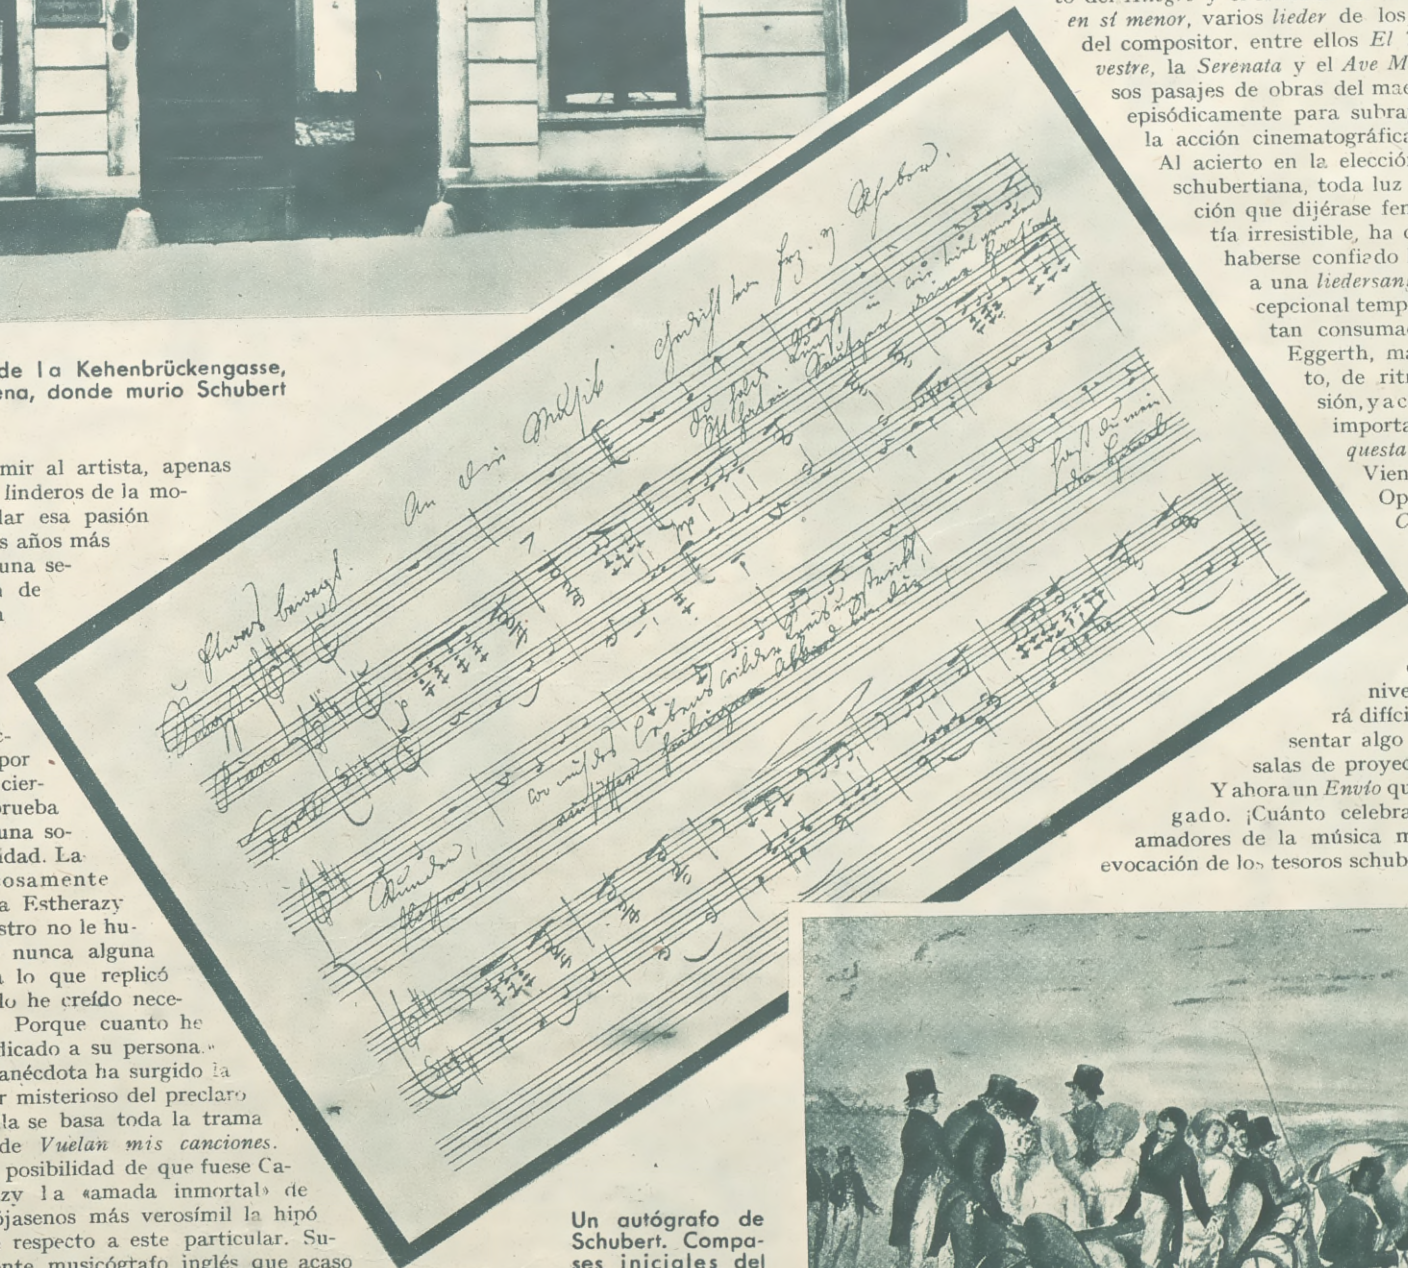 de la Kehenbrückengasse,
ena, donde murio Schubert
mir al artista, apenas
linderos de la mo-
lar esa pasión
s años más
una se-
de
c-
por
cier-
prueba
una so-
idad. La
osamente
a Estherazy
stro no le hu-
nunca alguna
a lo que replicó
lo he creído nece-
Porque cuanto he
licado a su persona.»
anécdota ha surgido la
r misterioso del preclaro
la se basa toda la trama
de Vuelan mis canciones.
posibilidad de que fuese Ca-
zy la «amada inmortal» de
ójasenos más verosímil la hipó
respecto a este particular. Su-
nte musicógrafo inglés que acaso
An die Musik Gedicht von Frz. v. Schober.
Etwas bewegt.
Singst.
Piano
Forte
Du holde
Kunst in
wie viel grauen
Stunden,
wo mich des Lebens wilder Kreis umstrickt,
hast du mein
Un autógrafo de
Schubert. Compa-
ses iniciales del
en sí menor, varios lieder de los
del compositor, entre ellos El
vestre, la Serenata y el Ave M
sos pasajes de obras del mae
episódicamente para subra
la acción cinematográfica
Al acierto en la elección
schubertiana, toda luz
ción que dijérase fer
tía irresistible, ha
haberse confiado
a una liedersang
cepcional temp
tan consumad
Eggerth, ma
to, de ritm
sión, y a c
importa
questa
Vien
Op
C
nive
rá difíci
sentar algo
salas de proyec
Y ahora un Envío qu
gado. ¡Cuánto celebra
amadores de la música m
evocación de los tesoros schub